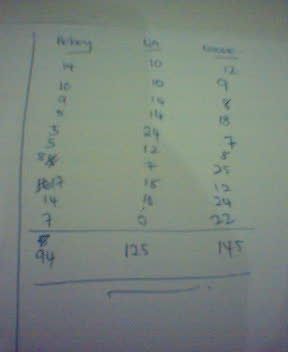 14 10 12
10 10 9
9 14 8
5 14 18
24 7
5 12 8
8 7 25
17 18 12
14 16 24
7 0 22
94 125 145